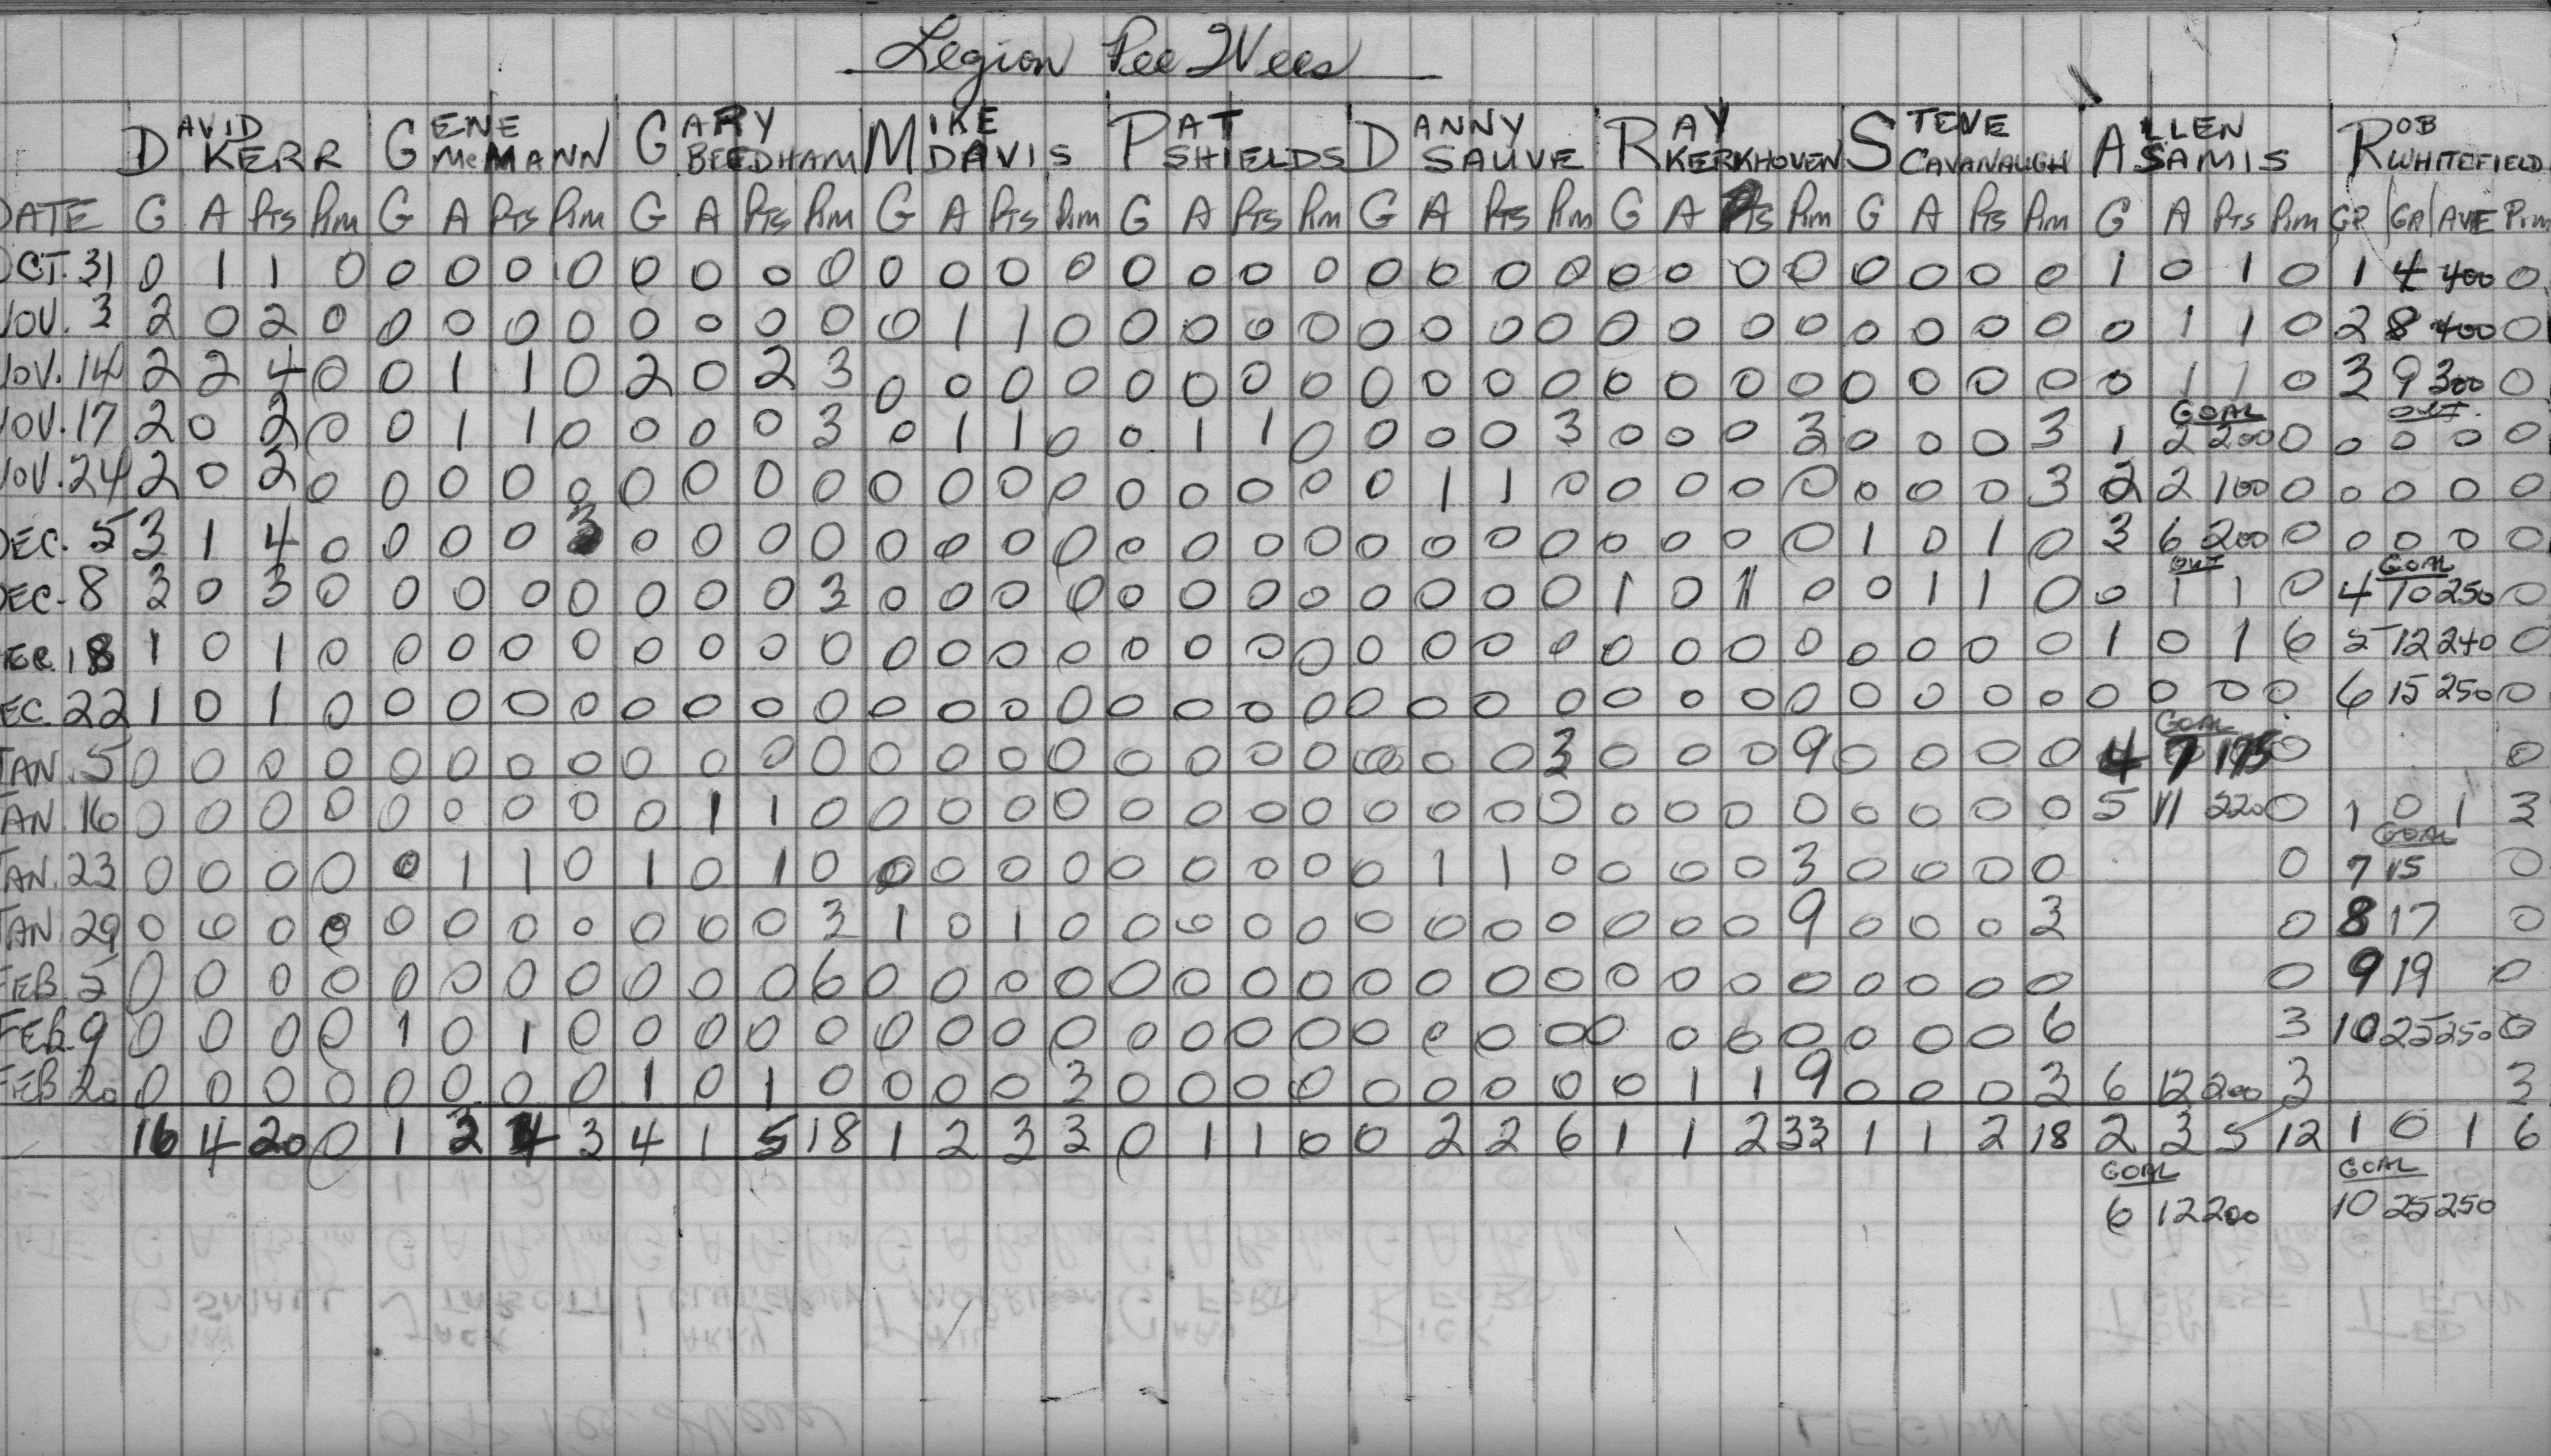 Legion Pee Wees
DAVID KERR GENE McMANN GARY BEEDHAM MIKE DAVIS PAT SHIELDS DANNY SAUVE RAY KERKHOVEN STEVE CAVANAUGH ALLEN SAMIS ROB WHITEFIELD
DATE G A Pts Pim G A Pts Pim G A Pts Pim G A Pts Pim G A Pts Pim G A Pts Pim G A Pts Pim G A Pts Pim G A Pts Pim GP GA AVE Pim
OCT. 31 0 1 1 0 0 0 0 0 0 0 0 0 0 0 0 0 0 0 0 0 0 0 0 0 0 0 0 0 0 0 0 0 1 0 1 0 1 4 400 0
NOV. 3 2 0 2 0 0 0 0 0 0 0 0 0 0 1 1 0 0 0 0 0 0 0 0 0 0 0 0 0 0 0 0 0 0 1 1 0 2 8 400 0
NOV. 14 2 2 4 0 0 1 1 0 2 0 2 3 0 0 0 0 0 0 0 0 0 0 0 0 0 0 0 0 0 0 0 0 0 1 1 0 3 9 300 0
GOAL OUT
NOV. 17 2 0 2 0 0 1 1 0 0 0 0 3 0 1 1 0 0 1 1 0 0 0 0 3 0 0 0 3 0 0 0 3 1 2 200 0 0 0 0 0
NOV. 24 2 0 2 0 0 0 0 0 0 0 0 0 0 0 0 0 0 0 0 0 0 1 1 0 0 0 0 0 0 0 0 3 2 2 100 0 0 0 0 0
DEC. 5 3 1 4 0 0 0 0 3 0 0 0 0 0 0 0 0 0 0 0 0 0 0 0 0 0 0 0 0 1 0 1 0 3 6 200 0 0 0 0 0
OUT GOAL
DEC. 8 3 0 3 0 0 0 0 0 0 0 0 3 0 0 0 0 0 0 0 0 0 0 0 0 1 0 1 0 0 1 1 0 0 1 1 0 4 10 250 0
DEC. 18 1 0 1 0 0 0 0 0 0 0 0 0 0 0 0 0 0 0 0 0 0 0 0 0 0 0 0 0 0 0 0 0 1 0 1 6 5 12 240 0
DEC. 22 1 0 1 0 0 0 0 0 0 0 0 0 0 0 0 0 0 0 0 0 0 0 0 0 0 0 0 0 0 0 0 0 0 0 0 0 6 15 250 0
GOAL
JAN. 5 0 0 0 0 0 0 0 0 0 0 0 0 0 0 0 0 0 0 0 0 0 0 0 3 0 0 0 9 0 0 0 0 4 7 175 0 0
JAN. 16 0 0 0 0 0 0 0 0 0 1 1 0 0 0 0 0 0 0 0 0 0 0 0 0 0 0 0 0 0 0 0 0 5 11 220 0 1 0 1 3
GOAL
JAN. 23 0 0 0 0 0 1 1 0 1 0 1 0 0 0 0 0 0 0 0 0 0 1 1 0 0 0 0 3 0 0 0 0 0 7 15 0
JAN 29 0 0 0 0 0 0 0 0 0 0 0 3 1 0 1 0 0 0 0 0 0 0 0 0 0 0 0 9 0 0 0 3 0 8 17 0
FEB. 2 0 0 0 0 0 0 0 0 0 0 0 6 0 0 0 0 0 0 0 0 0 0 0 0 0 0 0 0 0 0 0 0 0 9 19 0
FEB. 9 0 0 0 0 1 0 1 0 0 0 0 0 0 0 0 0 0 0 0 0 0 0 0 0 0 0 0 0 0 0 0 6 3 10 25 250 0
FEB 20 0 0 0 0 0 0 0 0 1 0 1 0 0 0 0 3 0 0 0 0 0 0 0 0 0 1 1 9 0 0 0 3 6 12 200 3 3
16 4 20 0 1 3 4 3 4 1 5 18 1 2 3 3 0 1 1 0 0 2 2 6 1 1 2 33 1 1 2 18 2 3 5 12 1 0 1 6
GOAL GOAL
6 12 200 10 25 250